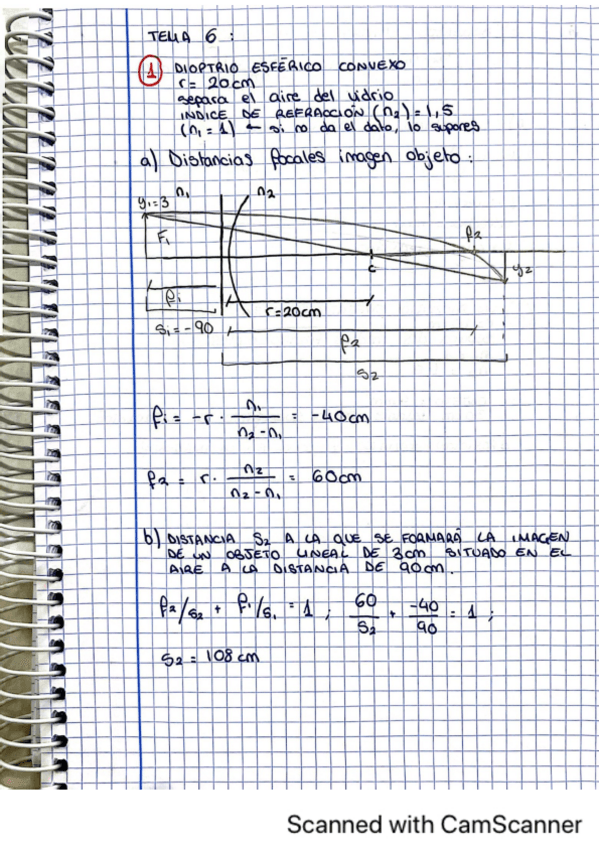 TEMA 6 :
1 DIOPTRIO ESFÉRICO CONVEXO
r = 20cm
separa el aire del vidrio
INDICE DE REFRACCIÓN (n2) = 1,5
(n1 = 1) ← si no da el dato, lo supones
a) Distancias focales imagen objeto :
y1=3 n1 n2
F1 f2
c y2
f1 r=20cm
S1 = -90 f2
S2
f1 = -r · n1 / (n2 - n1) = -40cm
f2 = r · n2 / (n2 - n1) = 60cm
b) DISTANCIA S2 A LA QUE SE FORMARÁ LA IMAGEN
DE UN OBJETO LINEAL DE 3cm SITUADO EN EL
AIRE A LA DISTANCIA DE 90cm.
f2/s2 + f1/s1 = 1 ; 60/S2 + -40/90 = 1 ;
S2 = 108 cm
Scanned with CamScanner